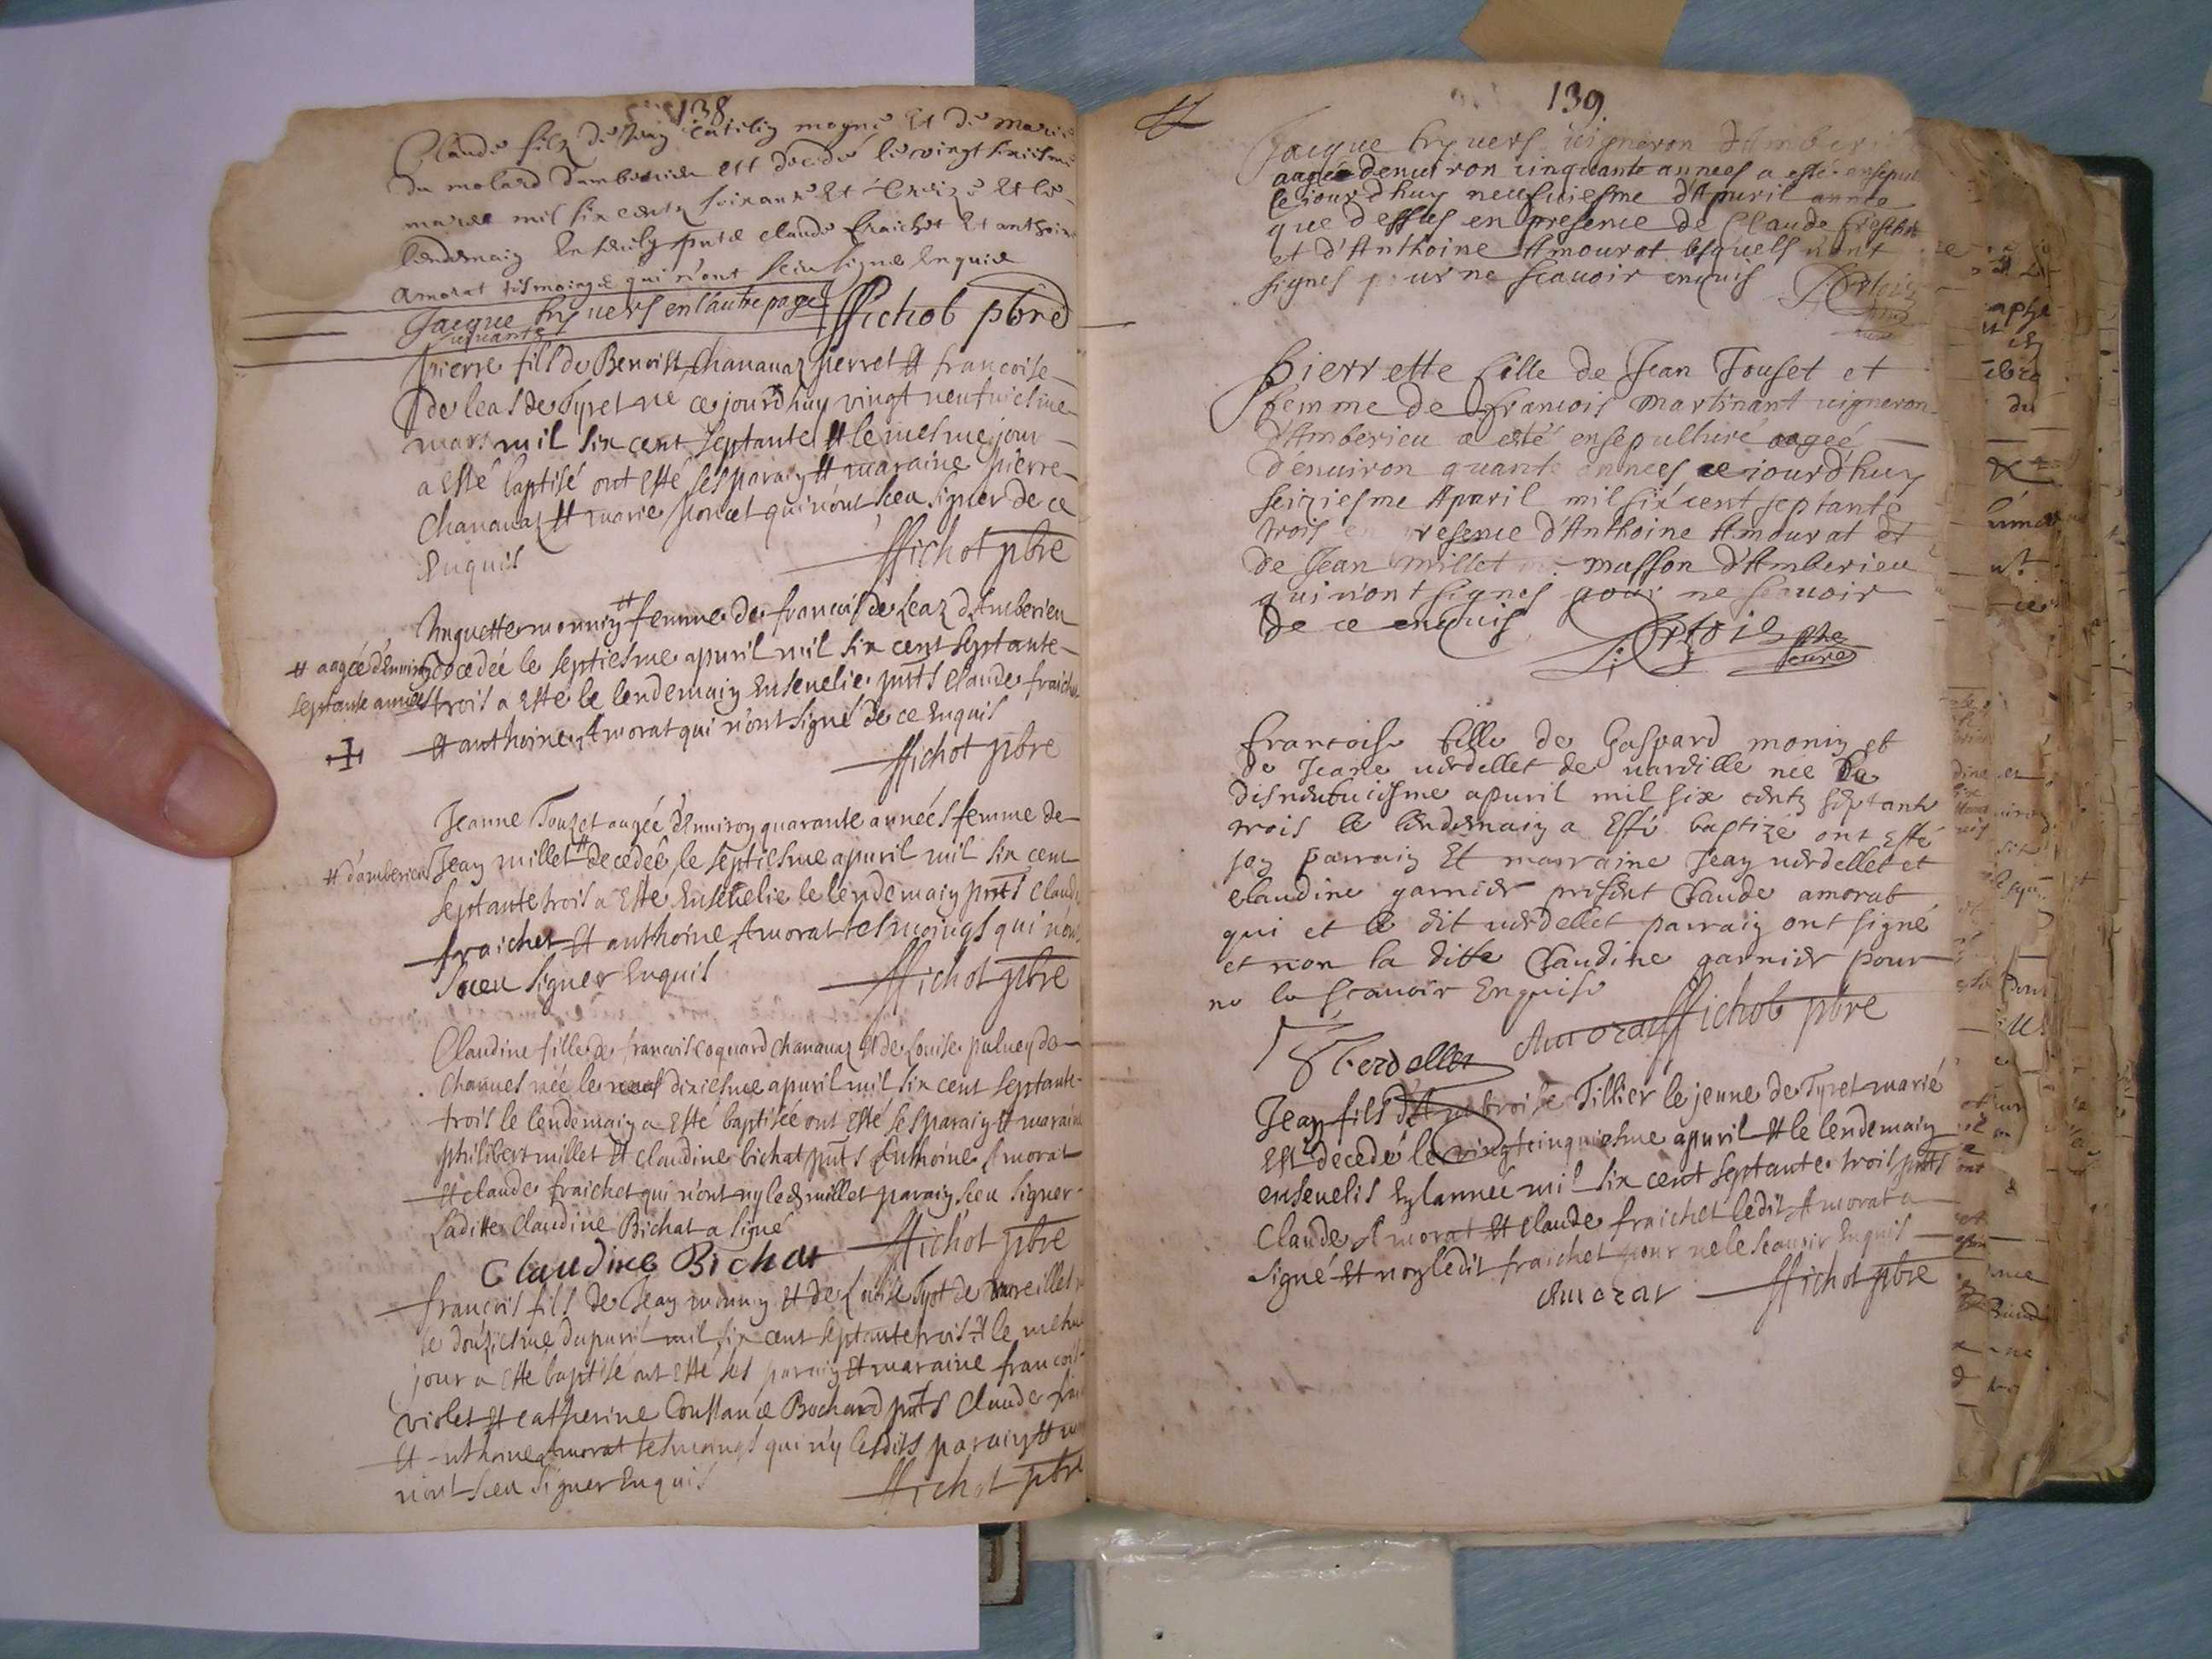 138
Claude filz de Jean Catilin mogne Et de Marie
du molard d'amberieu est decedé le vingt sixiesme
mars mil six centz soixante Et treize Et le
lendemain Ensevely pnts claude fraichet Et anthoine
Amorat tesmoings qui n'ont sceu signe Enquis
Jacque hyvers en l'autre page
suivante
ffichot pbre
pierre fils de Benoist Chananaz pierret et francoise
de leas de Tyret né ce jourd'huy vingt neufuiesme
mars mil six cent septante et le mesme jour
a Esté baptisé ont Esté ses parain et maraine pierre
Chananaz et marie poncet qui n'ont sceu signer de ce
Enquis
ffichot pbre
Huguette monnin # femme de francois de Leaz d'Amberieu
# aagée d'Enuiron
septante années
decedée le septiesme apuril mil six cent septante
trois a Esté le lendemain Enseuelie pnts Claude fraichet
et anthoine Amorat qui n'ont signé de ce Enquis
ffichot pbre
Jeanne Touzet aagée d'Enuiron quarante années femme de
# d'amberieu
Jean millet # decedée le septiesme apuril mil six cent
septante trois a Esté Enseuelie le lendemain pnts Claude
fraichet et anthoine Amorat tesmoings qui n'ont
sceu signer Enquis
ffichot pbre
Claudine fille de francois coquard Chananaz et de Louise puluey de
Chaunes née le neuf dixiesme apuril mil six cent septante
trois le lendemain a Esté baptisée ont Esté ses parain et maraine
philibert millet et claudine bichat pnts Anthoine Amorat
et claude fraichet qui n'ont ny led. millet parain sceu signer
Laditte Claudine Bichat a signé
Claudine Bichat
ffichot pbre
francois fils de Jean monnin et de Louise Tyot de vareilles
le douziesme d'apuril mil six cent septante trois et le mesme
jour a esté baptisé ont esté ses parain et maraine francois
violet et catherine Constance Bochard pnts Claude
et anthoine Amorat tesmoings qui n'y lesdits parain et
n'ont sceu signer Enquis
ffichot pbre
139
Jacque hyvers vigneron d'Amberieu
aagée denuiron cinquante annees a esté ensepul
le iourd'huy neufuiesme d'Apuril année
que dessus en presence de Claude freschet
et d'Anthoine Amourat lesquels n'ont
signes pour ne scauoir enquis
Pierrette fille de Jean Touset et
femme de francois Martinant uigneron
d'Amberieu a esté ensepulturé aageé
d'énuiron quante annees ce iourd'huy
seiziesme Apuril mil six cent septante
trois en presence d'Anthoine Amourat et
de Jean Millet masson d'Amberieu
qui n'ont signes pour ne scauoir
de ce enquis
curé
francoise fille de Gaspard monin et
de Jeane uerdellet de uareille née le
disneufuiesme apuril mil six centz septante
trois le lendemain a Esté baptizé ont Esté
son parrain Et marraine Jean uerdellet et
claudine garnier present Claude amorat
qui et le dit uerdellet parrain ont signé
et non la ditte Claudine garnier pour
ne le scauoir Enquise
Verdellet
Amorat
ffichot pbre
Jean fils d'Ambroise Tillier le jeune de Tyret marié
Est decedé le vingtcinquiesme apuril et le lendemain
enseuelis En l'année mil six cent septante trois pnts
Claude Amorat et Claude fraichet ledit Amorat a
signé et non ledit fraichet pour ne le scauoir Enquis
Amorat
ffichot pbre